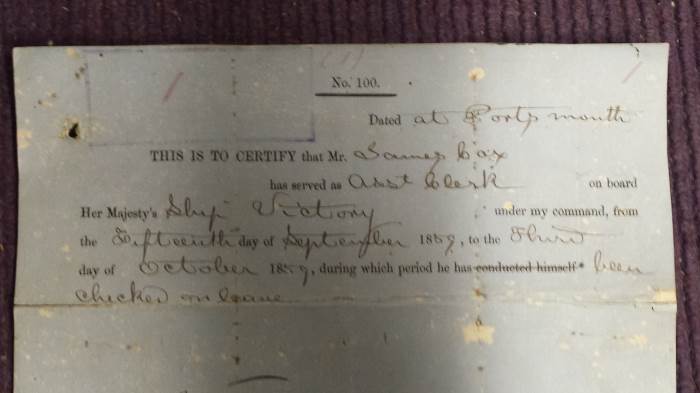 No. 100.
Dated at Portsmouth
THIS IS TO CERTIFY that Mr. James Cox
has served as Asst Clerk on board
Her Majesty's Ship Victory under my command, from
the Fifteenth day of September 1859, to the Third
day of October 1859, during which period he has conducted himself* been
checked on leave